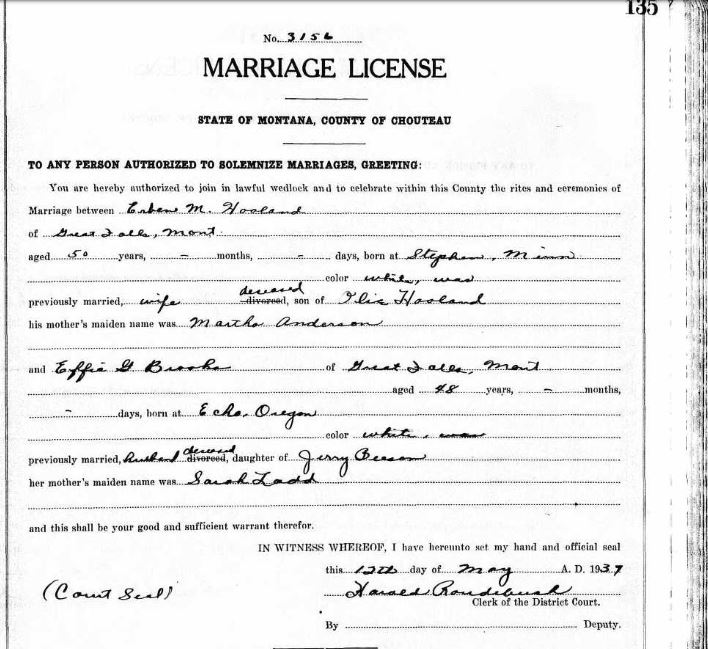 135
No. 3156
MARRIAGE LICENSE
STATE OF MONTANA, COUNTY OF CHOUTEAU
TO ANY PERSON AUTHORIZED TO SOLEMNIZE MARRIAGES, GREETING:
You are hereby authorized to join in lawful wedlock and to celebrate within this County the rites and ceremonies of
Marriage between Erben M. Hovland
of Great Falls, Mont.
aged 50 years, – months, – days, born at Stephen, Minn
color white, was
deceased
previously married, wife divorced, son of Hovland
his mother's maiden name was Martha Anderson
and Effie G Brooks of Great Falls, Mont
aged 48 years, – months,
– days, born at Echo, Oregon
color white, was
deceased
previously married, husband divorced, daughter of Jerry Beeson
her mother's maiden name was Sarah Ladd
and this shall be your good and sufficient warrant therefor.
IN WITNESS WHEREOF, I have hereunto set my hand and official seal
this 12th day of May A. D. 1937
(Court Seal) Harold Roudebush
Clerk of the District Court.
By Deputy.